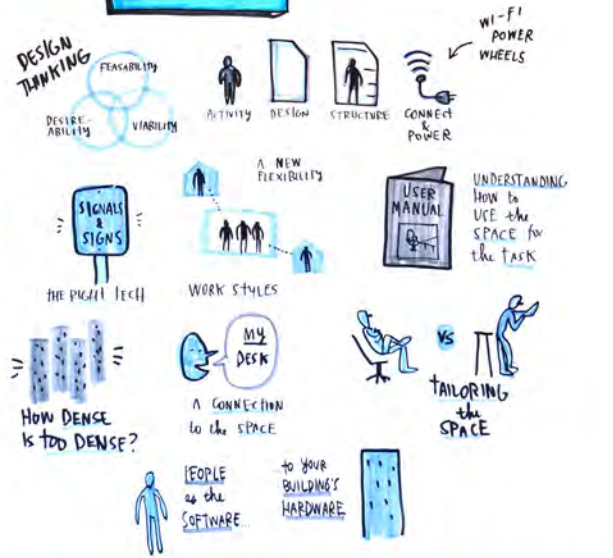 DESIGN
THINKING
FEASABILITY
DESIRE-
ABILITY
VIABILITY
ACTIVITY
DESIGN
STRUCTURE
CONNECT
&
POWER
WI-FI
POWER
WHEELS
SIGNALS
&
SIGNS
THE RIGHT TECH
A NEW
FLEXIBILITY
WORK STYLES
USER
MANUAL
UNDERSTANDING
HOW to
USE the
SPACE for
the TASK
HOW DENSE
IS too DENSE?
MY
DESK
A CONNECTION
to the SPACE
VS
tAILORING
the
SPACE
PEOPLE
as the
SOFTWARE...
...to YOUR
BUILDING'S
HARDWARE